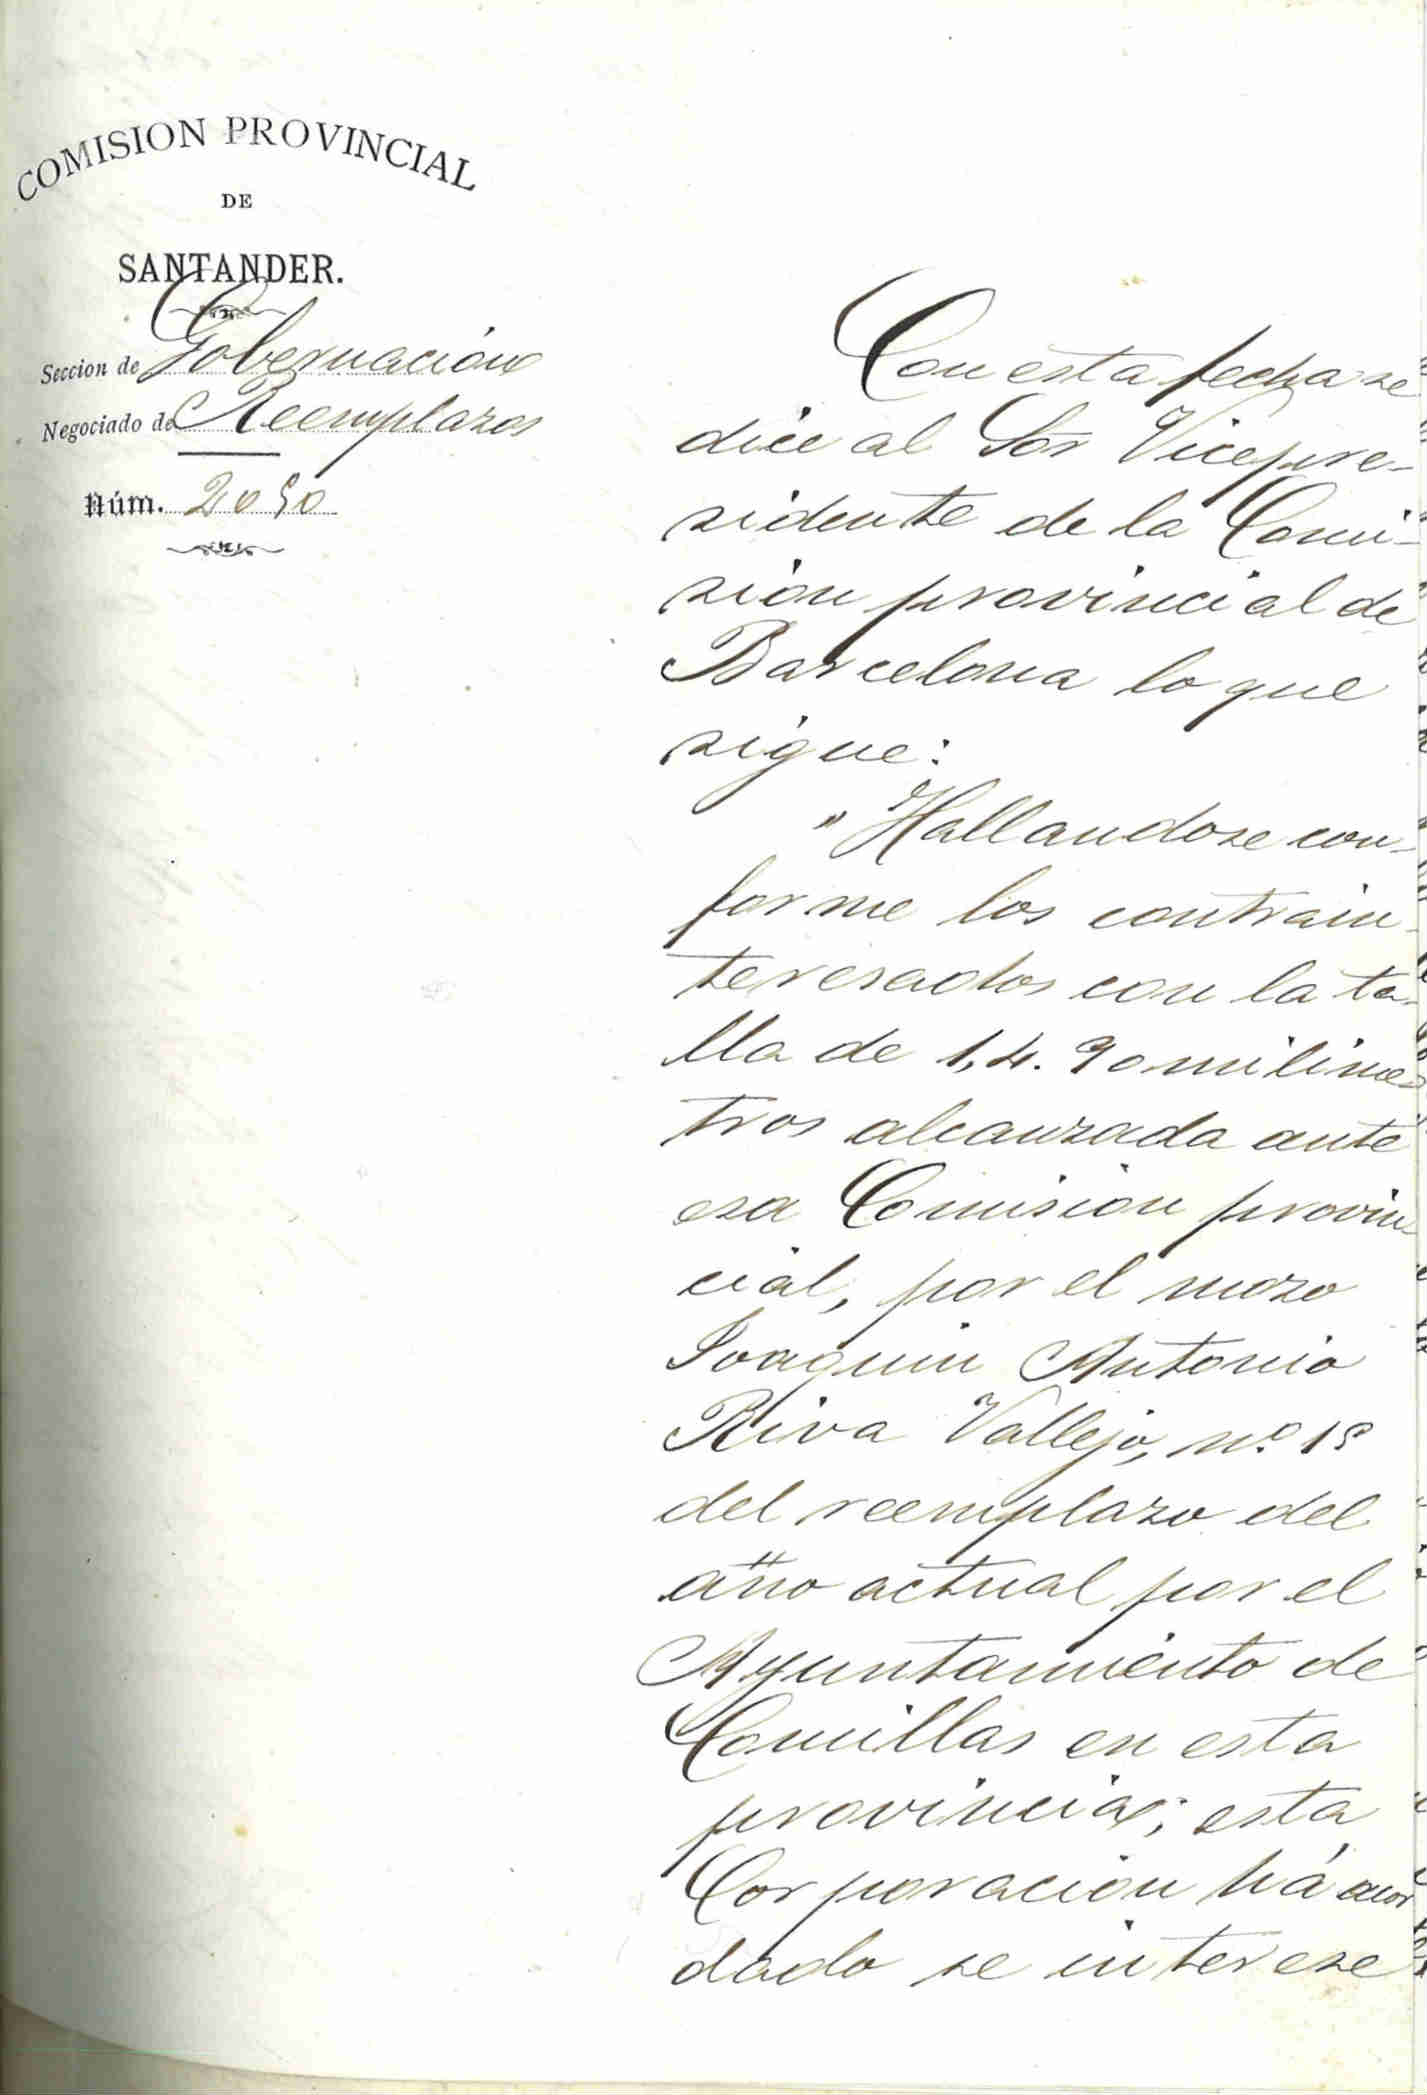 COMISION PROVINCIAL
DE
SANTANDER.
Seccion de Gobernación
Negociado de Reemplazos
Núm. 2050
Con esta fecha se
dice al Sor Vicepre-
sidente de la Comi-
sion provincial de
Barcelona lo que
sigue:
"Hallandose con-
forme los contrain-
teresados con la ta-
lla de 1,4.90 milime-
tros alcanzada ante
esa Comision provin-
cial, por el mozo
Joaquin Antonio
Riva Vallejo, nº 15
del reemplazo del
año actual por el
Ayuntamiento de
Comillas en esta
provincia; esta
Corporacion há acor
dado se interese